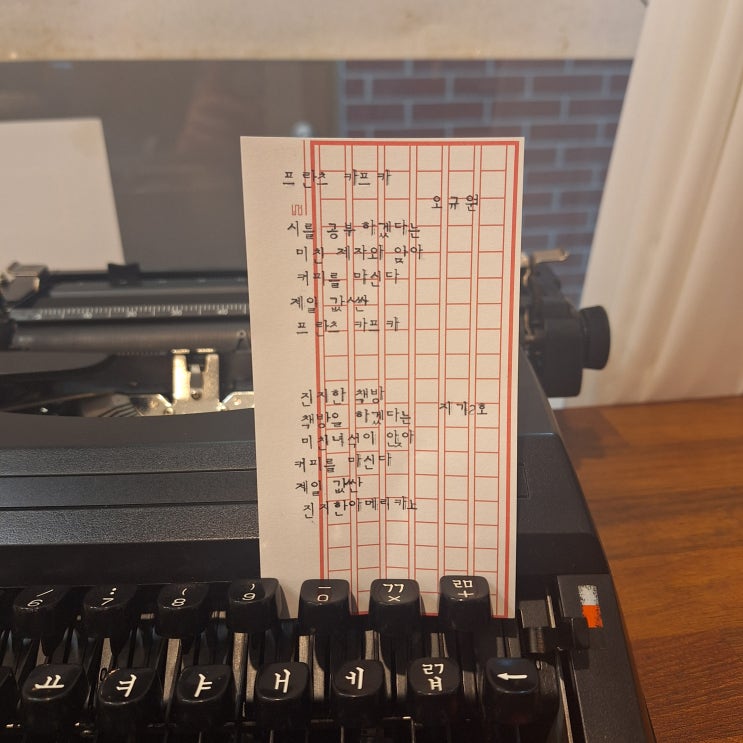 프란츠 카프카
오규원
시를 공부하겠다는
미친 제자와 앉아
커피를 마신다
제일 값싼
프란츠 카프카
진지한 책방
지기2호
책방을 하겠다는
미친녀석이 앉아
커피를 마신다
제일 값싼
진지한아메리카노
/ 6
: 7
( 8
) 9
ㅡ 0
ㄲ ×
ㄻ +
ㅛ
ㅕ
ㅑ
ㅐ
ㅔ
ㄺ ㅒ
←